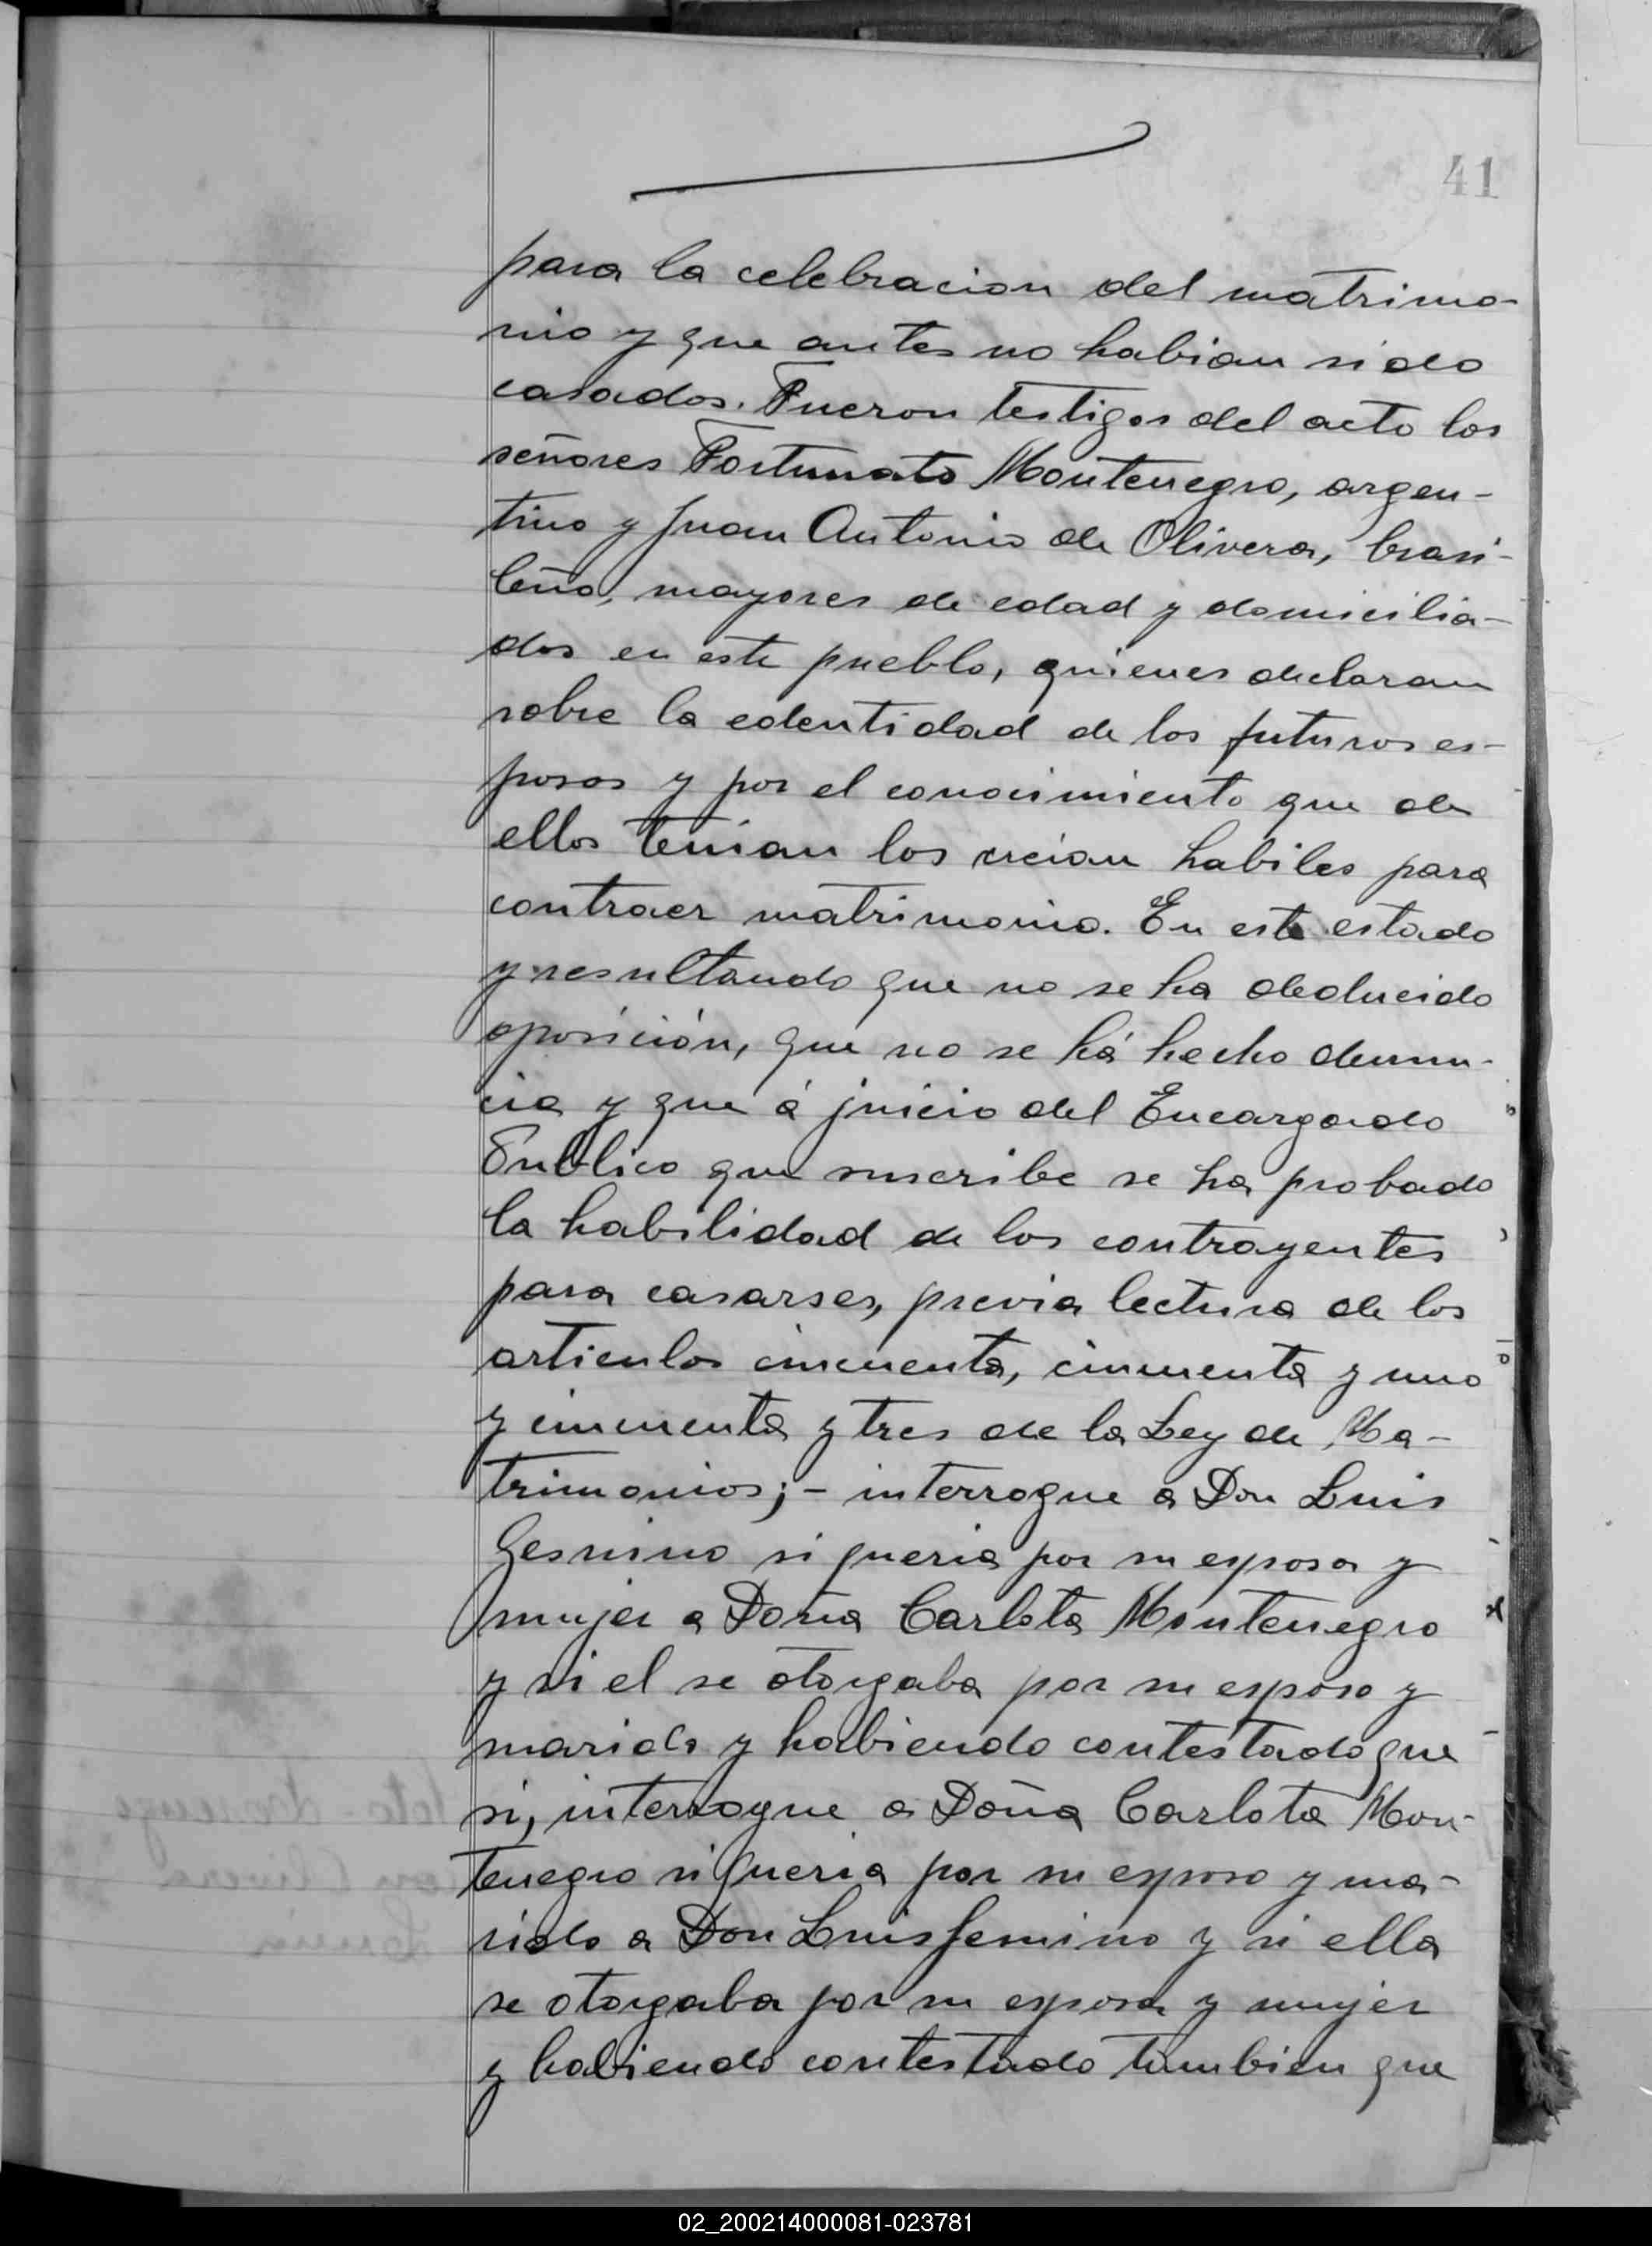 41
para la celebracion del matrimo-
nio y que antes no habian sido
casados. Fueron testigos del acto los
señores Fortunato Montenegro, argen-
tino y Juan Antonio de Olivera, brasi-
leño, mayores de edad y domicilia-
dos en este pueblo, quienes declaran
sobre la edentidad de los futuros es-
posos y por el conocimiento que de
ellos tenian los creian habiles para
contraer matrimonio. En este estado
y resultando que no se ha deducido
oposición, que no se há hecho denun-
cia y que á juicio del Encargado
Publico que suscribe se ha probado
la habilidad de los contrayentes
para casarses, previa lectura de los
articulos cincuenta, cincuenta y uno
y cincuenta y tres de la Ley de Ma-
trimonios;- interrogue a Don Luis
Gesmino si queria por su esposa y
mujer a Doña Carlota Montenegro
y si el se otorgaba por su esposo y
marido y habiendo contestado que
si, interrogue a Doña Carlota Mon-
tenegro si queria por su esposo y ma-
rido a Don Luis Gemino y si ella
se otorgaba por su esposa y mujer
y habiendo contestado tambien que
02_200214000081-023781